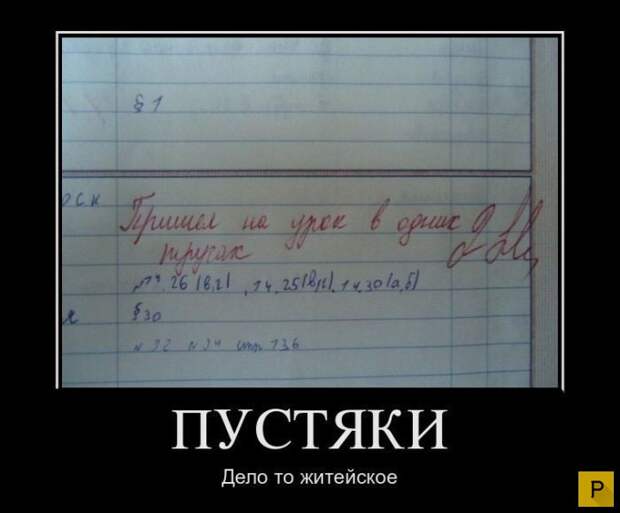 § 1
оск
Пришел на урок в одних 2
трусах
№14.26(в,г), 14.25(в,г), 14.30(а,б)
я
§30
№32 №34 стр 136
ПУСТЯКИ
Дело то житейское
P